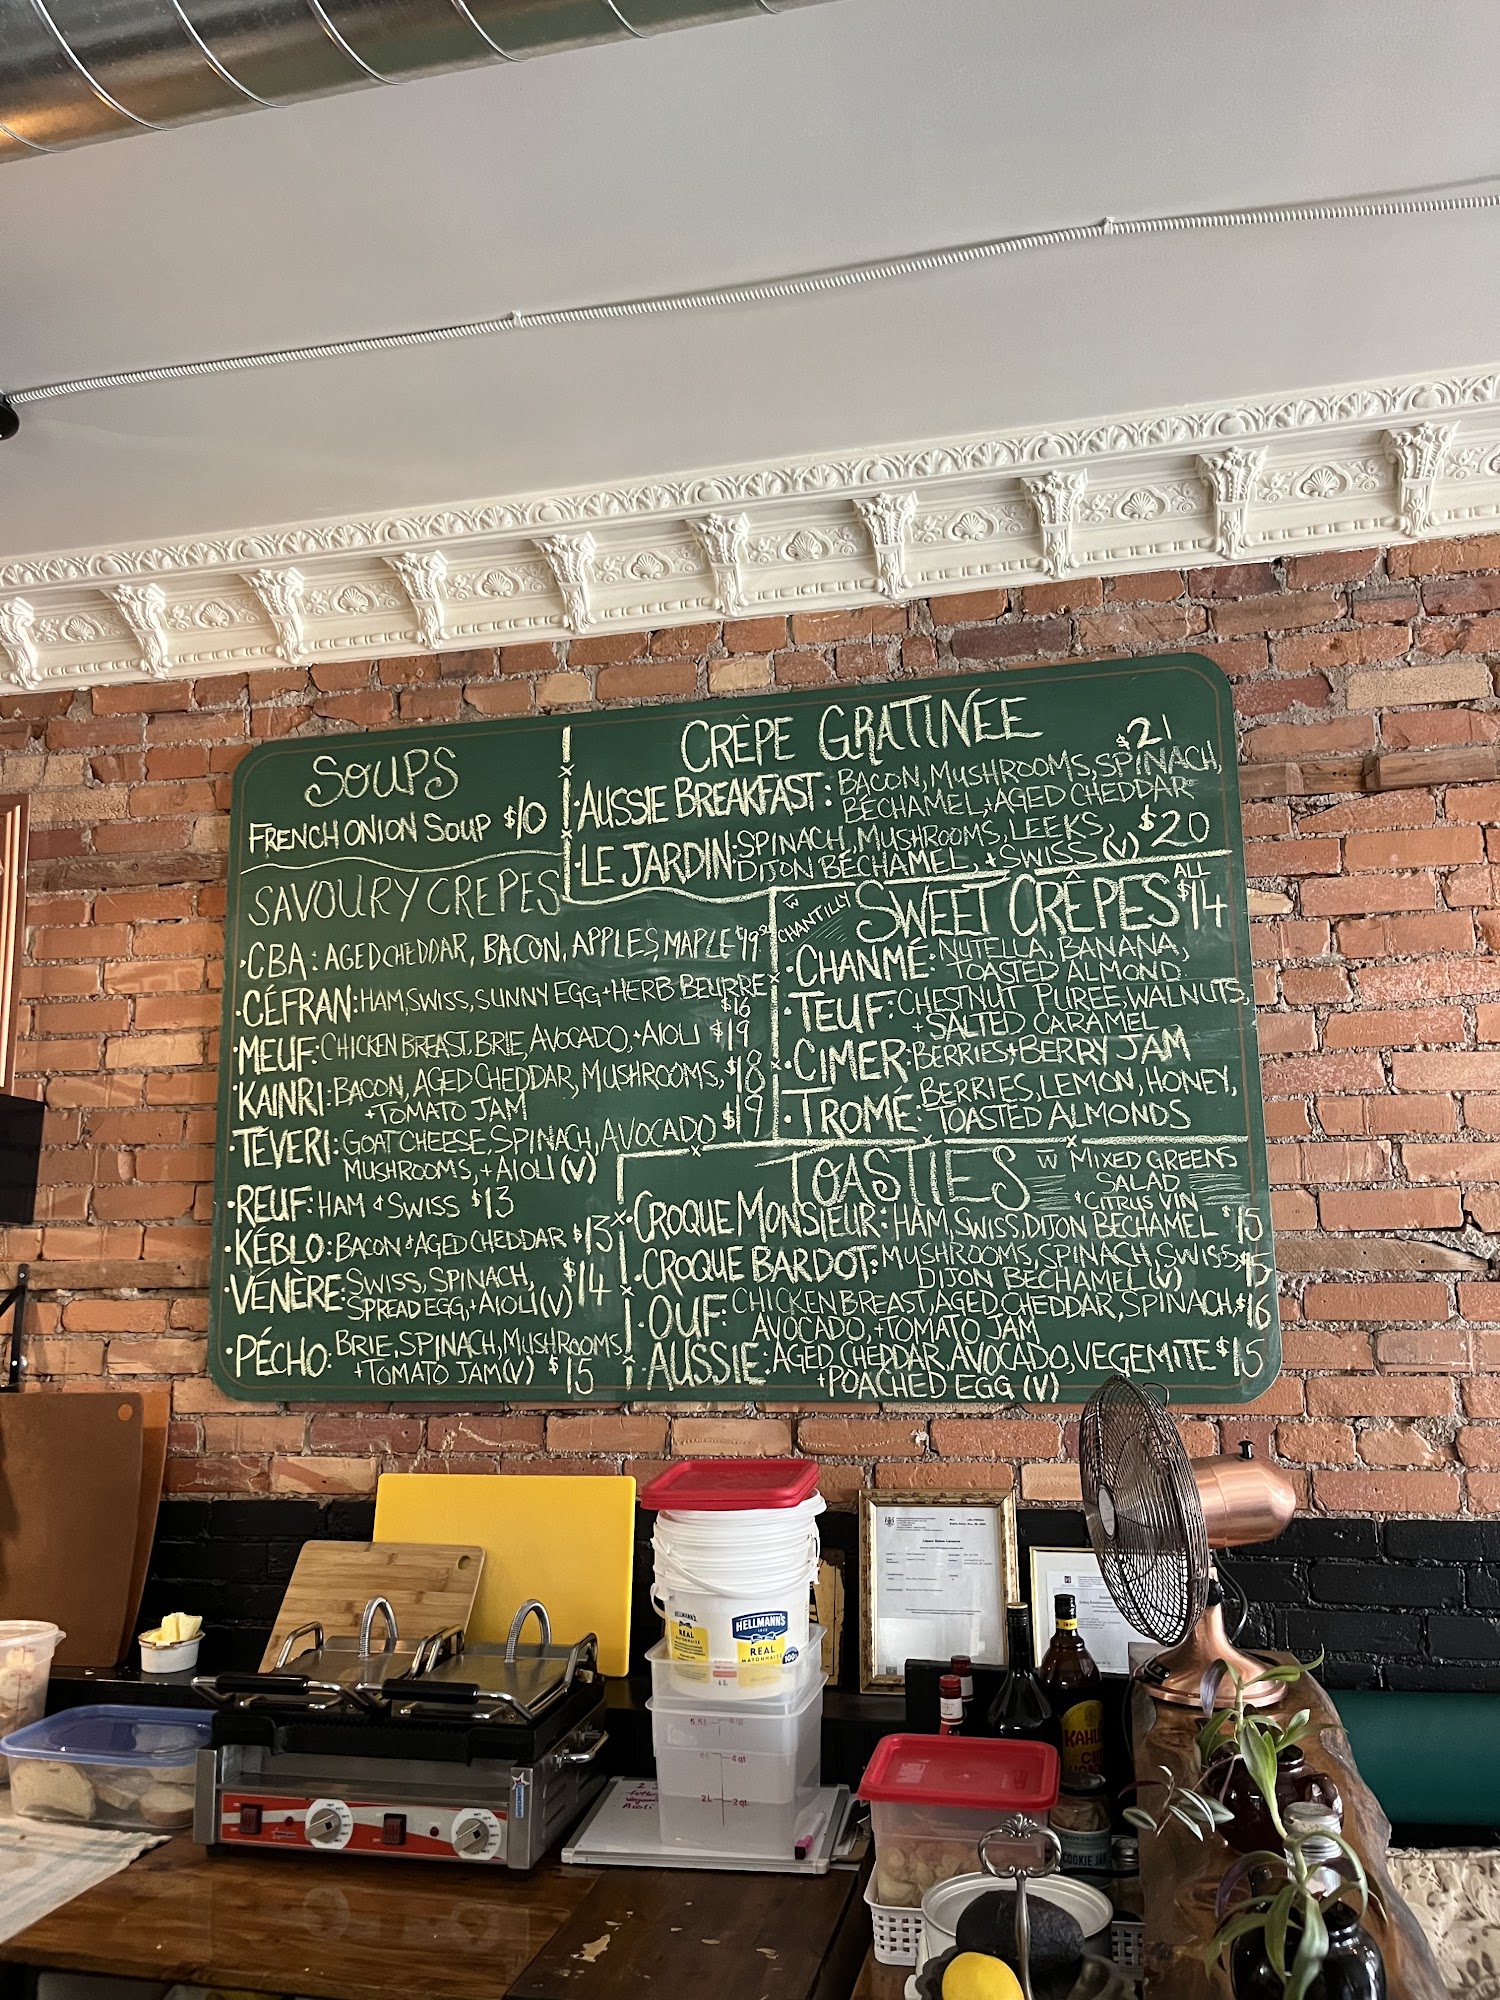 SOUPS
FRENCH ONION SOUP $10
SAVOURY CREPES
·CBA: AGED CHEDDAR, BACON, APPLES, MAPLE
·CÉFRAN: HAM, SWISS, SUNNY EGG + HERB BEURRE
$16
·MEUF: CHICKEN BREAST, BRIE, AVOCADO, + AIOLI $19
·KAINRI: BACON, AGED CHEDDAR, MUSHROOMS, $18
+ TOMATO JAM
·TÉVERI: GOAT CHEESE, SPINACH, AVOCADO $19
MUSHROOMS, + AIOLI (V)
·REUF: HAM & SWISS $13
·KÉBLO: BACON & AGED CHEDDAR $13
·VÉNÈRE: SWISS, SPINACH, $14
SPREAD EGG, + AIOLI (V)
·PÉCHO: BRIE, SPINACH, MUSHROOMS
+ TOMATO JAM (V) $15
CRÊPE GRATINEE
$21
·AUSSIE BREAKFAST: BACON, MUSHROOMS, SPINACH,
BÉCHAMEL, + AGED CHEDDAR
·LE JARDIN: SPINACH, MUSHROOMS, LEEKS, $20
DIJON BÉCHAMEL, + SWISS (V)
W CHANTILLY
SWEET CRÊPES ALL $14
·CHANMÉ: NUTELLA, BANANA,
TOASTED ALMOND
·TEUF: CHESTNUT PUREE, WALNUTS,
+ SALTED CARAMEL
·CIMER: BERRIES + BERRY JAM
·TROMÉ: BERRIES, LEMON, HONEY,
TOASTED ALMONDS
TOASTIES W MIXED GREENS
SALAD
& CITRUS VIN
·CROQUE MONSIEUR: HAM, SWISS, DIJON BECHAMEL $15
·CROQUE BARDOT: MUSHROOMS, SPINACH, SWISS, $15
DIJON BECHAMEL (V)
·OUF: CHICKEN BREAST, AGED CHEDDAR, SPINACH, $16
AVOCADO, + TOMATO JAM
·AUSSIE: AGED CHEDDAR, AVOCADO, VEGEMITE $15
+ POACHED EGG (V)
HELLMANN'S
REAL
MAYONNAISE
4L
HELLMANN'S
REAL
Liquor Sales Licence
4L 4 qt
2L 2 qt
COOKIE JAR